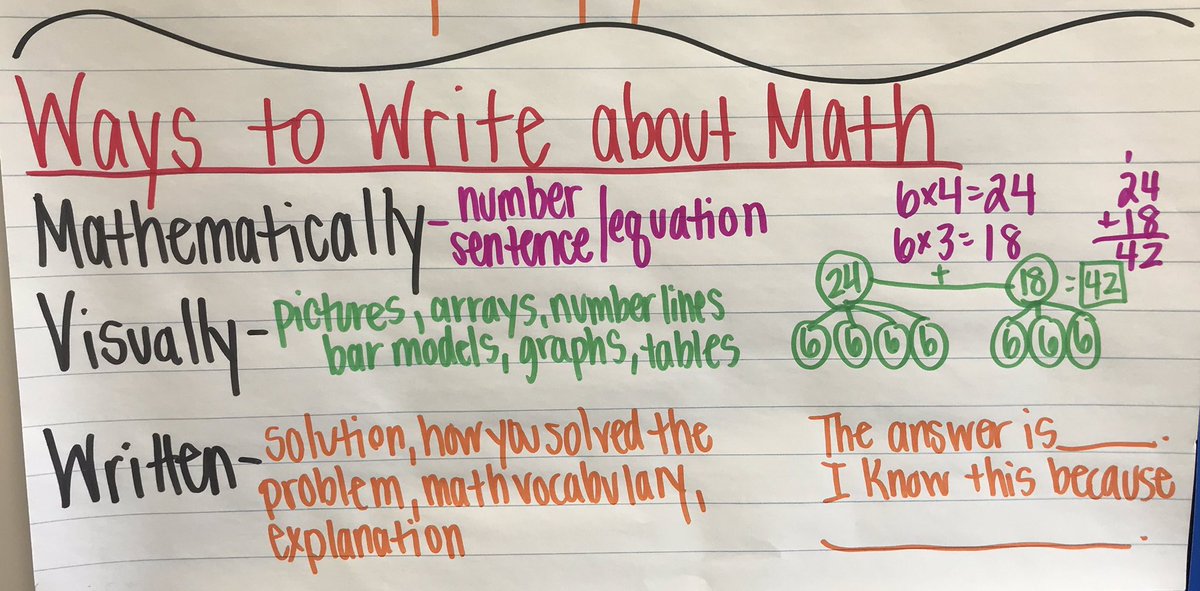 Ways to Write about Math
Mathematically - number sentence / equation
6×4=24
6×3=18
1
24
+18
42
Visually - pictures, arrays, number lines
bar models, graphs, tables
24 + 18 = 42
6 6 6 6 6 6 6
Written - solution, how you solved the
problem, math vocabulary,
explanation
The answer is ______.
I know this because
______.